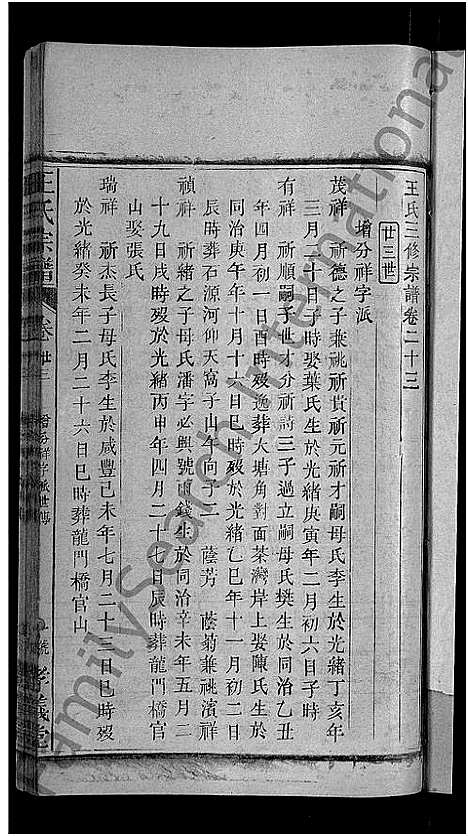 王氏三修宗譜卷二十三
廿三世
增分祥字派
茂祥 祈德之子兼祧祈貴祈元祈才嗣母氏李生於光緒丁亥年
三月二十日子時娶葉氏生於光緒庚寅年二月初六日子時
有祥 祈順嗣子世才分祈詩三子過立嗣母氏樊生於同治乙丑
年四月初一日酉時歿逸葬大塘角對面茶灣岸上娶陳氏生於
同治庚午年十月十六日巳時歿於光緒乙巳年十一月初二日
辰時葬石源河仰天窩子山午向子二 蔭芳 蔭菊兼祧濱祥
禎祥 祈緒之子母氏潘字必興號雨錢生於同治辛未年五月二
十九日戌時歿於光緒丙申年四月二十七日辰時葬龍門橋官
山娶張氏
瑞祥 祈杰長子母氏李生於咸豐己未年七月二十三日巳時歿
於光緒癸未年二月二十六日巳時葬龍門橋官山
王氏宗譜
卷廿三
增分祥字派世傳
孝義堂
FamilySearch International